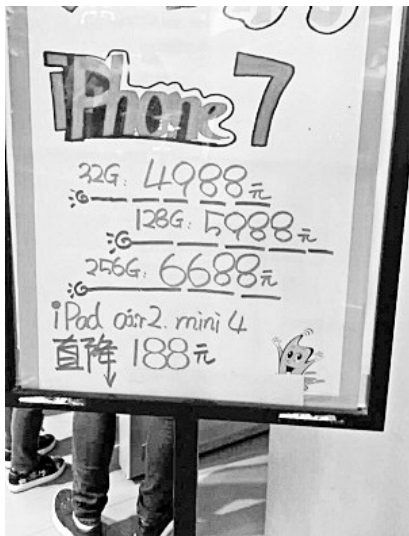 iPhone 7
32G: 4988元
128G: 5988元
256G: 6688元
iPad air2. mini 4
直降 188元